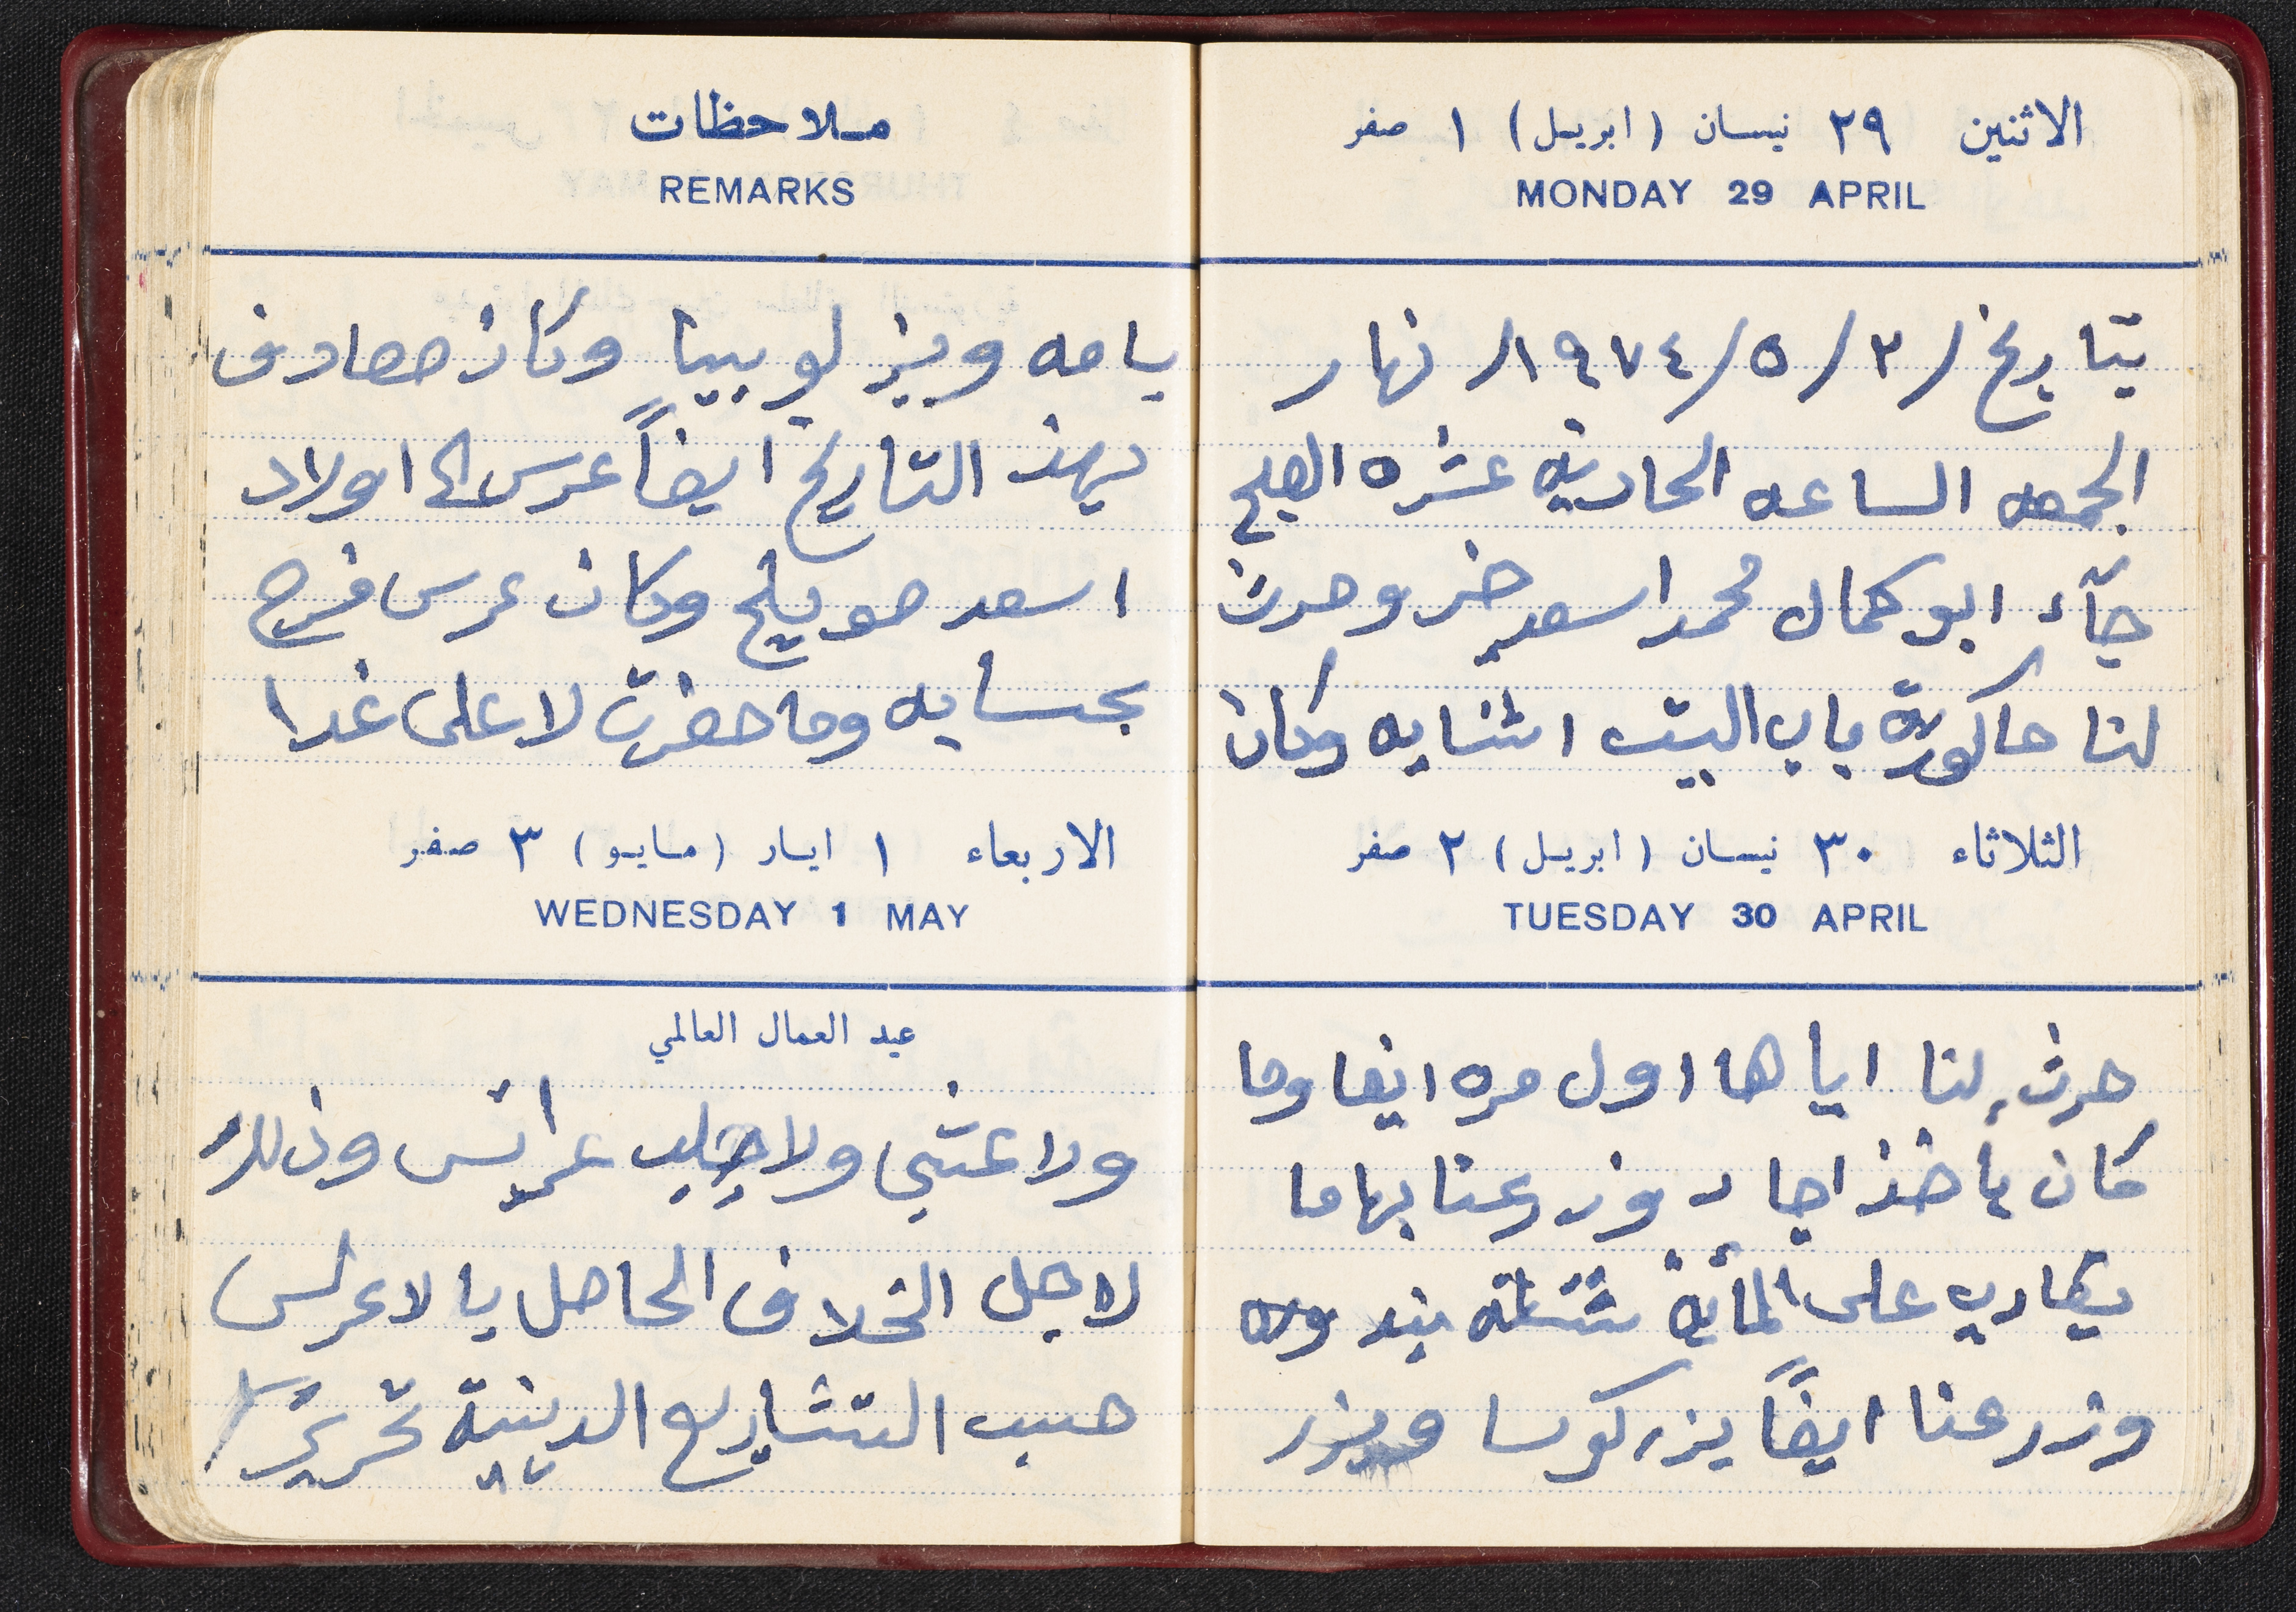 الاثنين ٢٩ نيسان (ابريل) ١ صفر
MONDAY 29 APRIL
بتاريخ /٣/٥/١٩٧٤/ نهار
الجمعه الساعه الحادية عشره الصبح
جآء ابو كمال محمد اسعد خر وحرث
لنا حاكورة باب البيت اثنايه وكان
الثلاثاء ٣٠ نيسان (ابريل) ٢ صفر
TUESDAY 30 APRIL
حرث لنا اياها اول مره ايضا وما
كان ياخذ اجار وزرعنا بها ما
يقارب على المأية شتلة بندوره
وزرعنا ايضاً بزر كوسا وبزر
ملاحظات
REMARKS
باميه وبزر لوبيا وكان مصادف
بهذ التاريخ ايضاً عرس الى اولاد
اسعد صويلح وكان عرس فرح
بحسايه وما حضرت لا على غدا
الاربعاء ١ ايار (مايو) ٣ صفر
WEDNESDAY 1 MAY
عيد العمال العالمي
ولا عشي ولا جلب عرائس وذلك
لاجل الخلاف الحاصل بالاعراس
حسب التشاريع الدينية تحريراً /